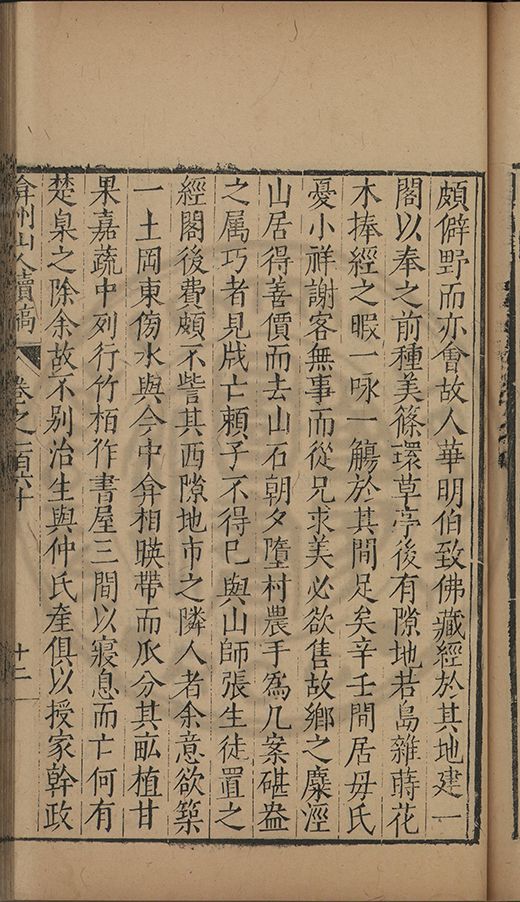 頗僻野而亦會故人華明伯致佛藏經於其地建一
閣以奉之前種美篠環草亭後有隙地若島雜蒔花
木捧經之暇一咏一觴於其間足矣辛壬間居毋氏
憂小祥謝客無事而從兄求美必欲售故鄉之麋涇
山居得善價而去山石朝夕墮村農手爲几案碪盎
之属巧者見戕亡賴子不得已與山師張生徒置之
經閣後費頗不訾其西隙地市之隣人者余意欲築
一土岡東傍水與今中弇相暎帶而瓜分其畝植甘
果嘉蔬中列行竹栢作書屋三間以寢息而亡何有
楚臬之除余故不别治生與仲氏產俱以授家幹政
弇州山人續稿 卷之一百六十 十二